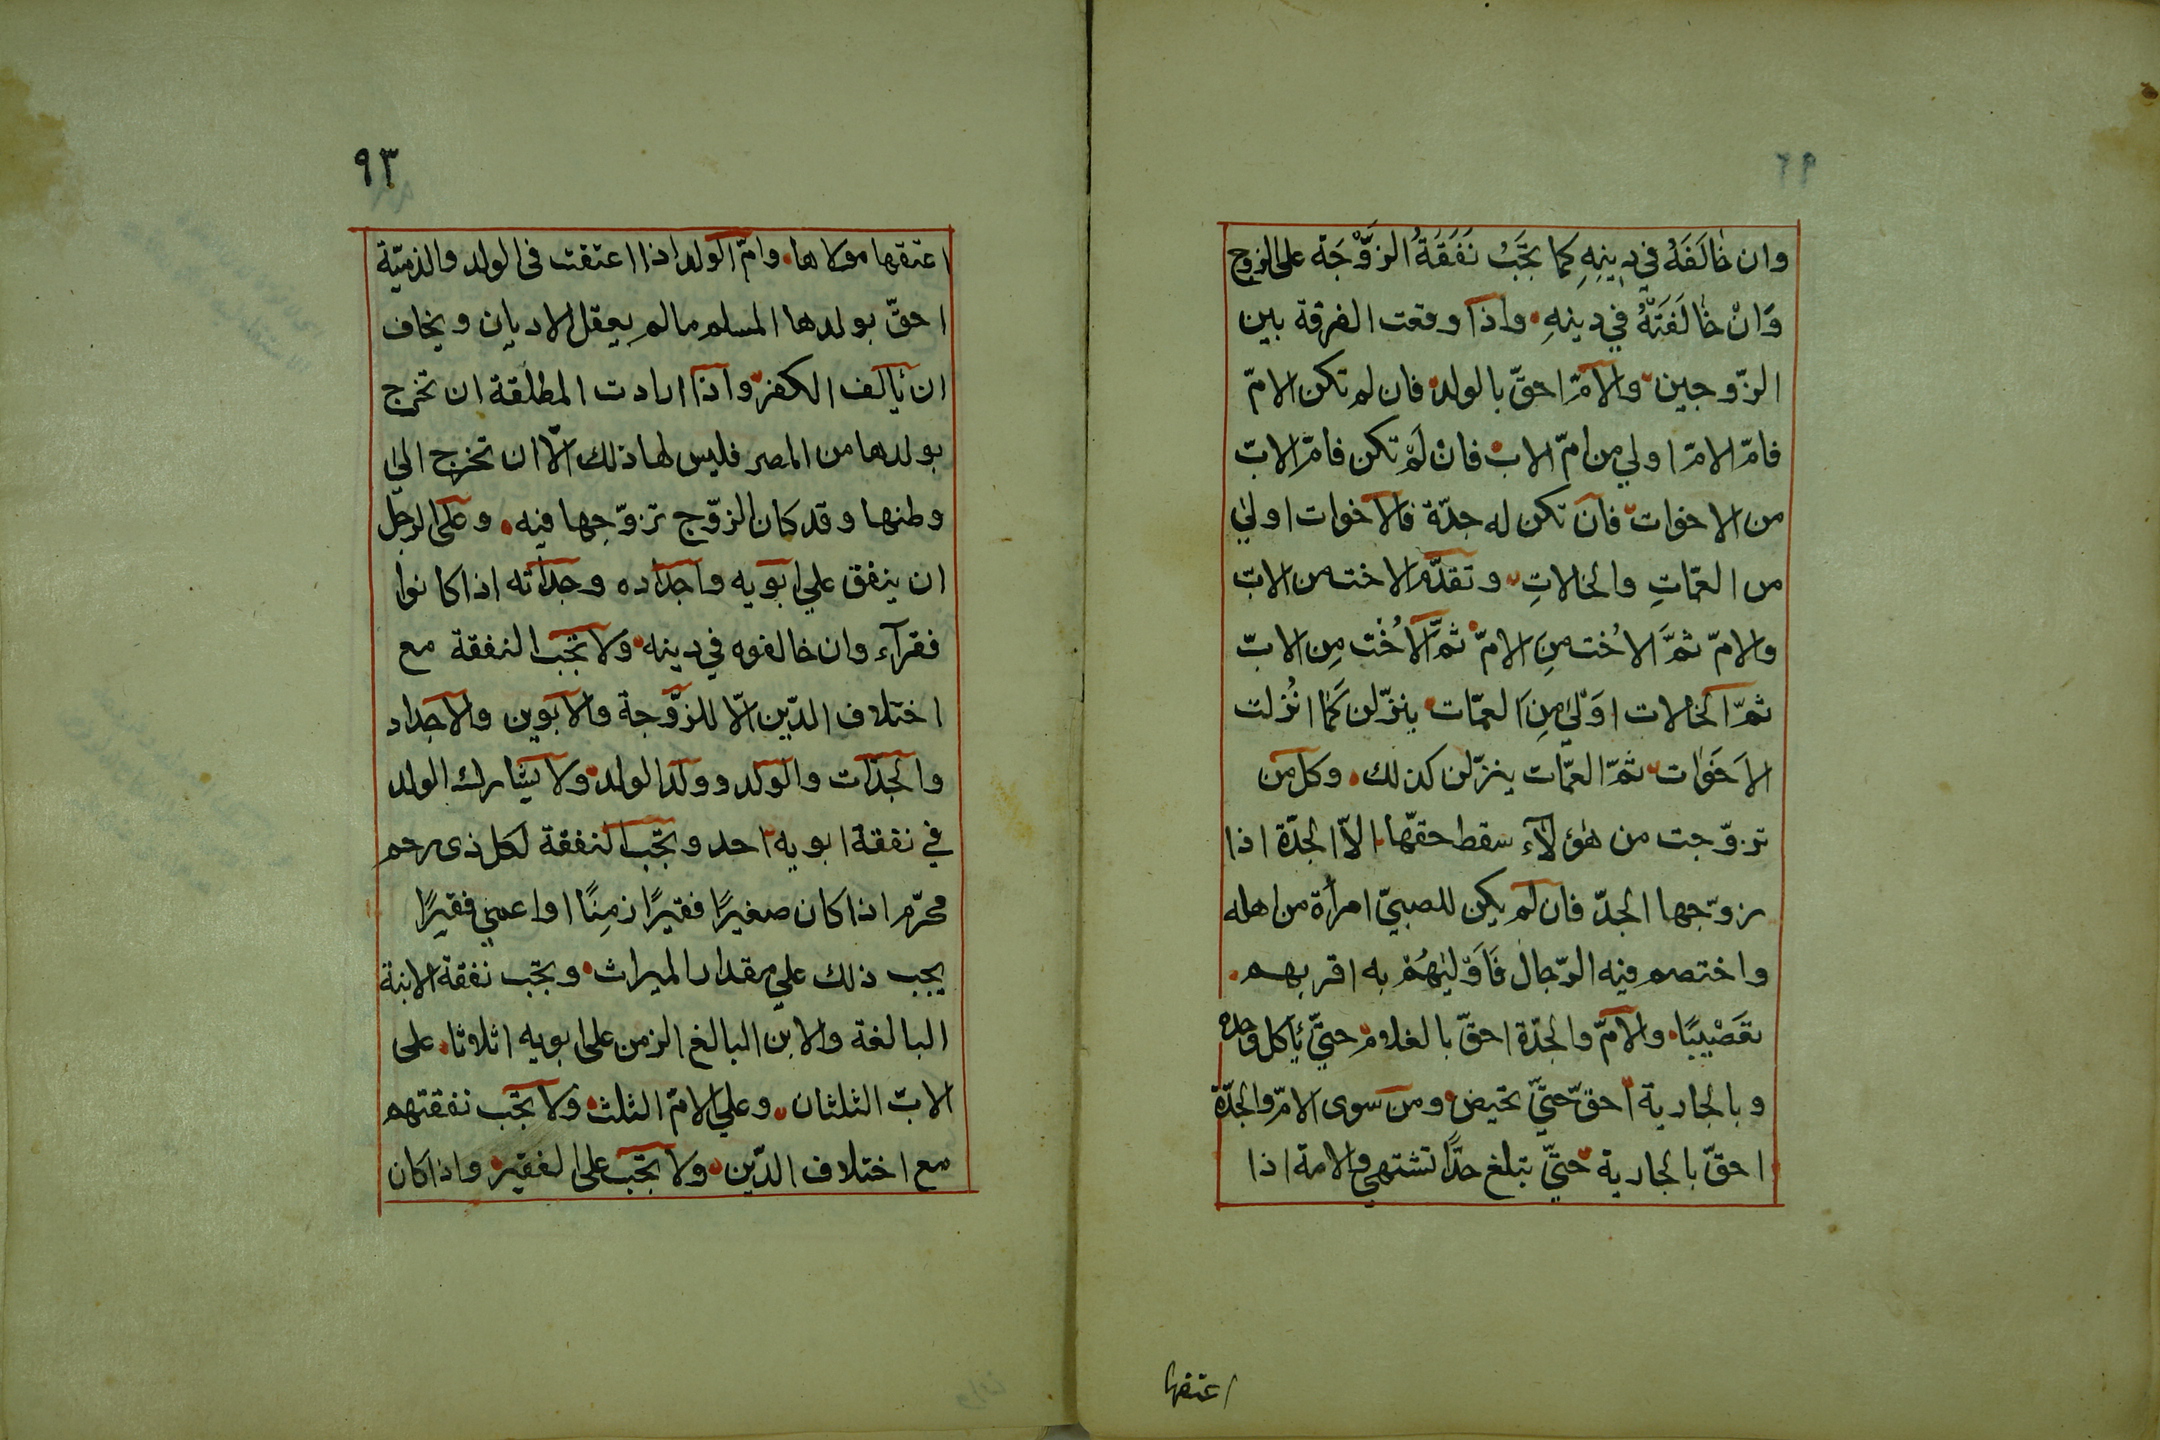 وان خٰالَفَهُ في دِينِهِ كما تجَبُ نَفَقَةُ الزَّوْجَة على الزوج
وَانْ خٰالَفَتْهُ في دينِهِ واذا وقعت الفرقة بين
الزّوجين والامّ احقّ بالولد فان لم تكن الامّ
فامّ الامّ اولي من امّ الاب فانْ لَمْ تكن فامّ الابّ
من الاخوات فان تكن له جدّة فالاخوات اوليٰ
من العمّاتِ والخالاتِ وتقدّم الاخت من الابّ
والامّ ثمَّ الاُخت مِنِ الامّ ثمَّ الاُخْت مِن الابّ
ثمّ الخالات اَوْليٰ مِنَ العمّات ينزّلن كَمٰا انُزلت
الاَخَوٰات ثمّ العمّات ينزّلن كذلك وكل من
تزوّجت من هٰؤلٓاء سقط حقّها الّا الجدّة اذا
زوّجها الجدّ فان لم يكن للصبيّ امرأة من اهله
واختصم فيه الرّجال فَاَوْليٰهُمْ به اقربهم
تعَصْيبًا والامّ والجدّة احقّ بالغلام حتيّ يأكل وحده
وبالجارية احقّ حتيّ تحيض ومن سوى الامّ والجدّة
احقّ بالجارية حتيّ تبلغ حدًّا تشتهي والامة اذا
اعتقها
٩٣
اعتقها مولاها وامّ الولد اذا اعتقت في الولد والذميّة
احقّ بولدها المسلم مالم يعقل الاديان ويخاف
ان يألف الكفر واذا ارادت المطلّقة ان تخرج
بولدها من المصر فليس لها ذلك الّا ان تخرج الي
وطنها وقد كان الزوّج تزوّجها فيه وعلى الرجل
ان ينفق علي ابويه واجداده وجدّاته اذا كانوا
فقرآء وان خالفوه في دينه ولا تجب النفقة مع
اختلاف الدّين الّا للزّوجة والابوين والاجداد
والجدّات والولد وولد الولد ولا يشارك الولد
في نفقة ابويه احد وتجب النفقة لكل ذى رحم
محرّم اذا كان صغيرًا فقيرًا زمِنًا او اعمي فقيرًا
يجب ذلك علي مقدار الميراث وتجب نفقة الابنة
البالغة والابن البالغ الزمن على ابويه اثلاثا على
الابّ الثلثان وعلي الامّ الثلث ولا تجب نفقتهم
مع اختلاف الدّين ولا تجب على الفقير واذا كان